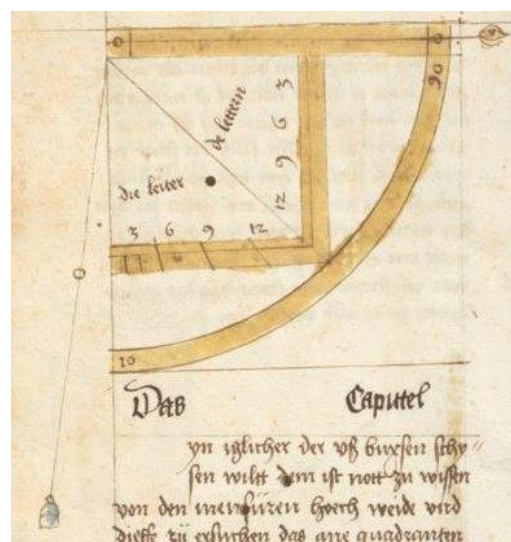 90
de lettern
3
6
9
12
die leiter
3 6 9 12
10
Das Caputel
yn iglicher der vß buxsen schy
sen wiltt dem ist nott zu wissen
von den mensüren hoech weide vnd
dieffe zü ersuchen das ane quadranten